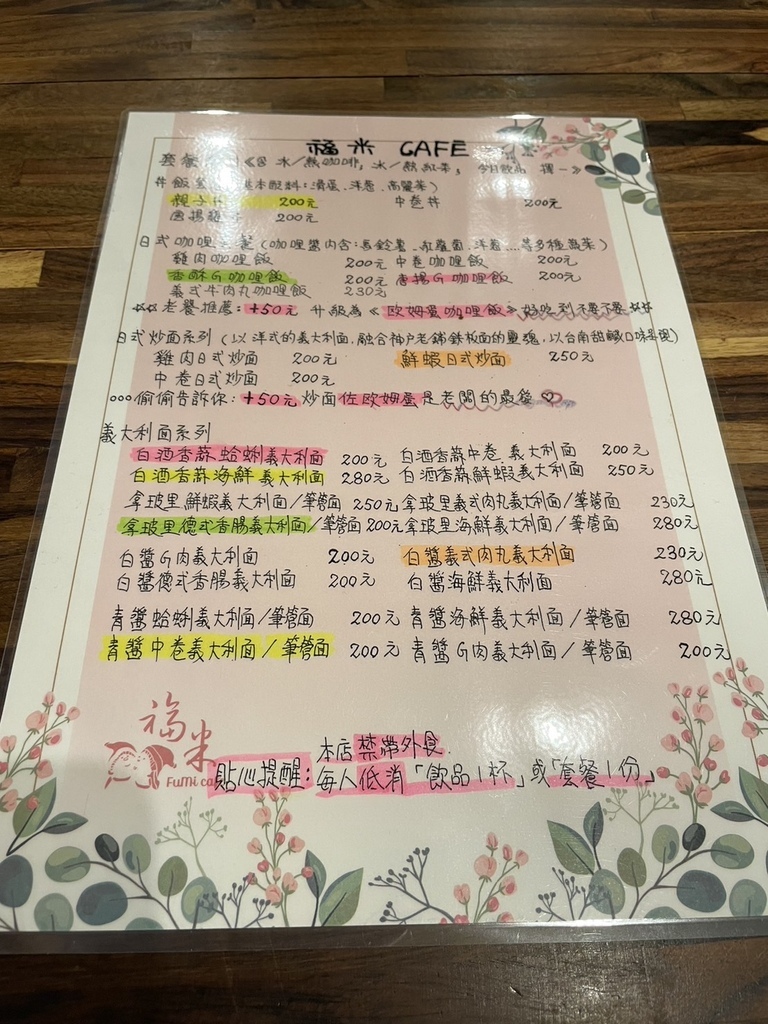 福米 CAFE
套餐 冰/熱咖啡, 冰/熱紅茶, 今日飲品 擇一》
丼飯 基本配料:滑蛋.洋蔥.高麗菜)
親子丼 200元 中卷丼 200元
唐揚雞丼 200元
日式咖哩 (咖哩醬內含:馬鈴薯.紅蘿蔔.洋蔥...等多種蔬菜)
雞肉咖哩飯 200元 中卷咖哩飯 200元
香酥G咖哩飯 200元 唐揚G咖哩飯 200元
義式牛肉丸咖哩飯 230元
☆☆老饕推薦:+50元 升級為《歐姆蛋咖哩飯》好吃到不要不要☆☆
日式炒面系列(以洋式的義大利面,融合神戶老鋪鉄板面的靈魂,以台南甜鹹口味呈現)
雞肉日式炒面 200元 鮮蝦日式炒面 250元
中卷日式炒面 200元
○○○偷偷告訴你:+50元炒面佐歐姆蛋是老闆的最愛♡
義大利面系列
白酒香蒜蛤蜊義大利面 200元 白酒香蒜中卷義大利面 200元
白酒香蒜海鮮義大利面 280元 白酒香蒜鮮蝦義大利面 250元
拿玻里鮮蝦義大利面/筆管面 250元 拿玻里義式肉丸義大利面/筆管面 230元
拿玻里德式香腸義大利面/筆管面 200元 拿玻里海鮮義大利面/筆管面 280元
白醬G肉義大利面 200元 白醬義式肉丸義大利面 230元
白醬德式香腸義大利面 200元 白醬海鮮義大利面 280元
青醬蛤蜊義大利面/筆管面 200元 青醬海鮮義大利面/筆管面 280元
青醬中卷義大利面/筆管面 200元 青醬G肉義大利面/筆管面 200元
福米
FuMi ca
本店禁帶外食.
貼心提醒:每人低消「飲品1杯」或「套餐1份」